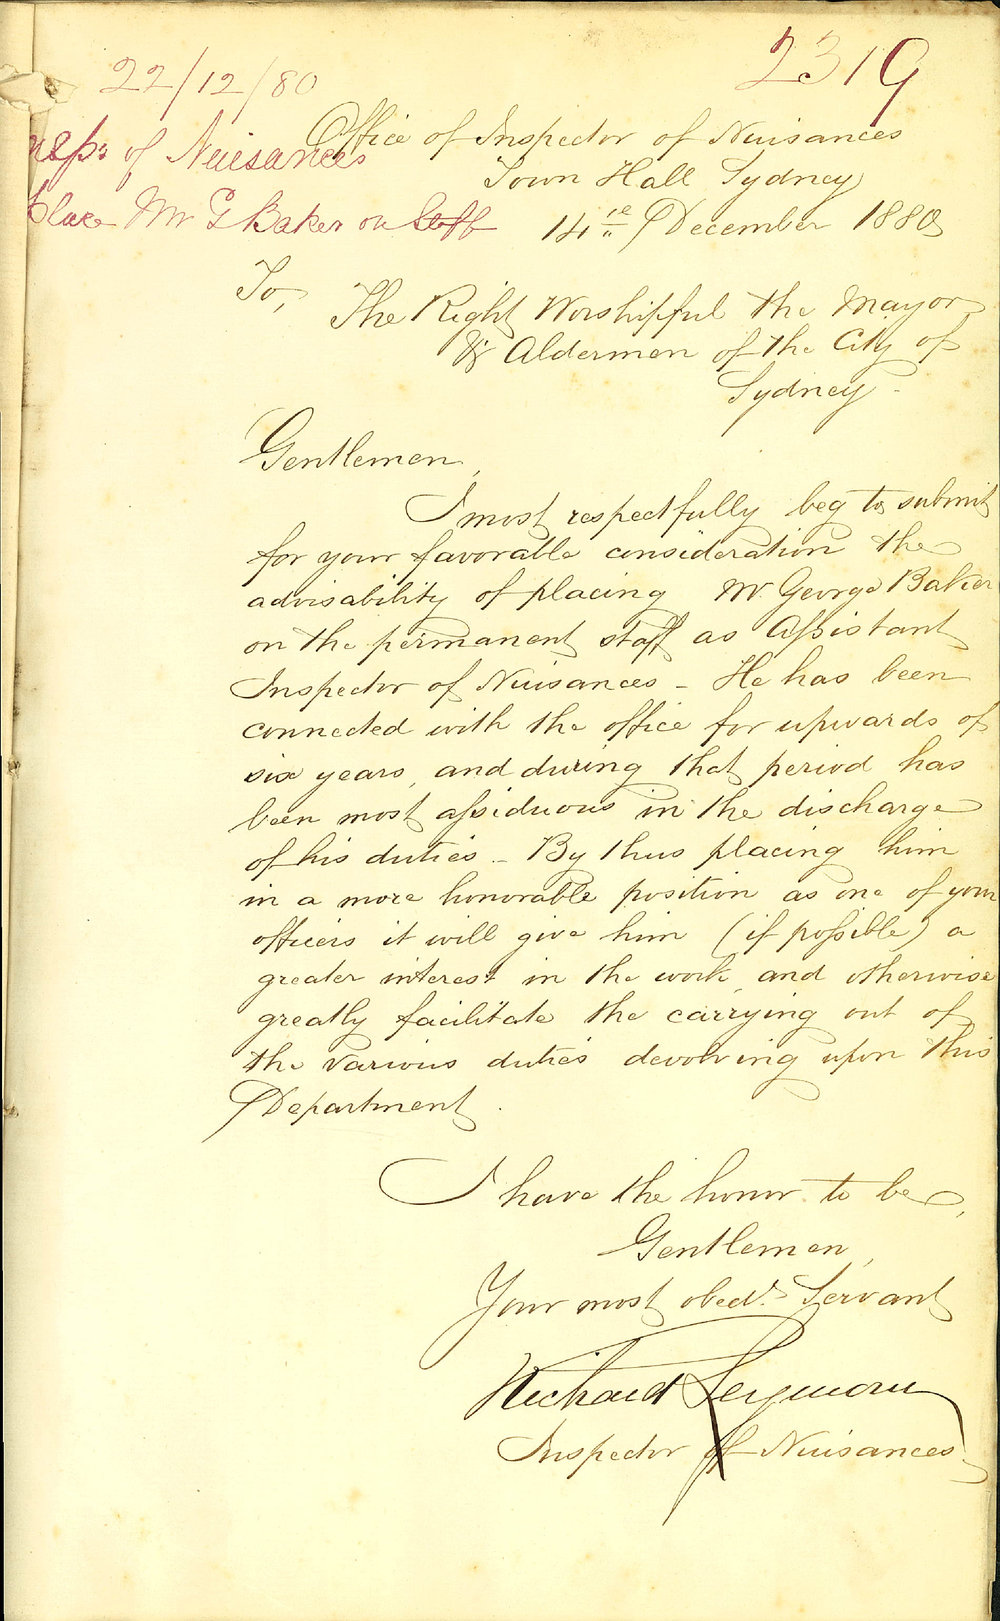 2319
22/12/80
Insp: of Nuisances
place Mr G Baker on Staff
Office of Inspector of Nuisances
Town Hall Sydney
14th December 1880
To,
The Right Worshipful the Mayor
& Aldermen of the City of
Sydney -
Gentlemen,
I most respectfully beg to submit
for your favorable consideration the
advisability of placing Mr George Baker
on the permanent staff as Assistant
Inspector of Nuisances - He has been
connected with the office for upwards of
six years, and during that period has
been most assiduous in the discharge
of his duties - By thus placing him
in a more honorable position as one of your
officers it will give him (if possible) a
greater interest in the work, and otherwise
greatly facilitate the carrying out of
the various duties devolving upon this
Department.
I have the honor to be,
Gentlemen,
Your most obedt. Servant
Richard Seymour
Inspector of Nuisances